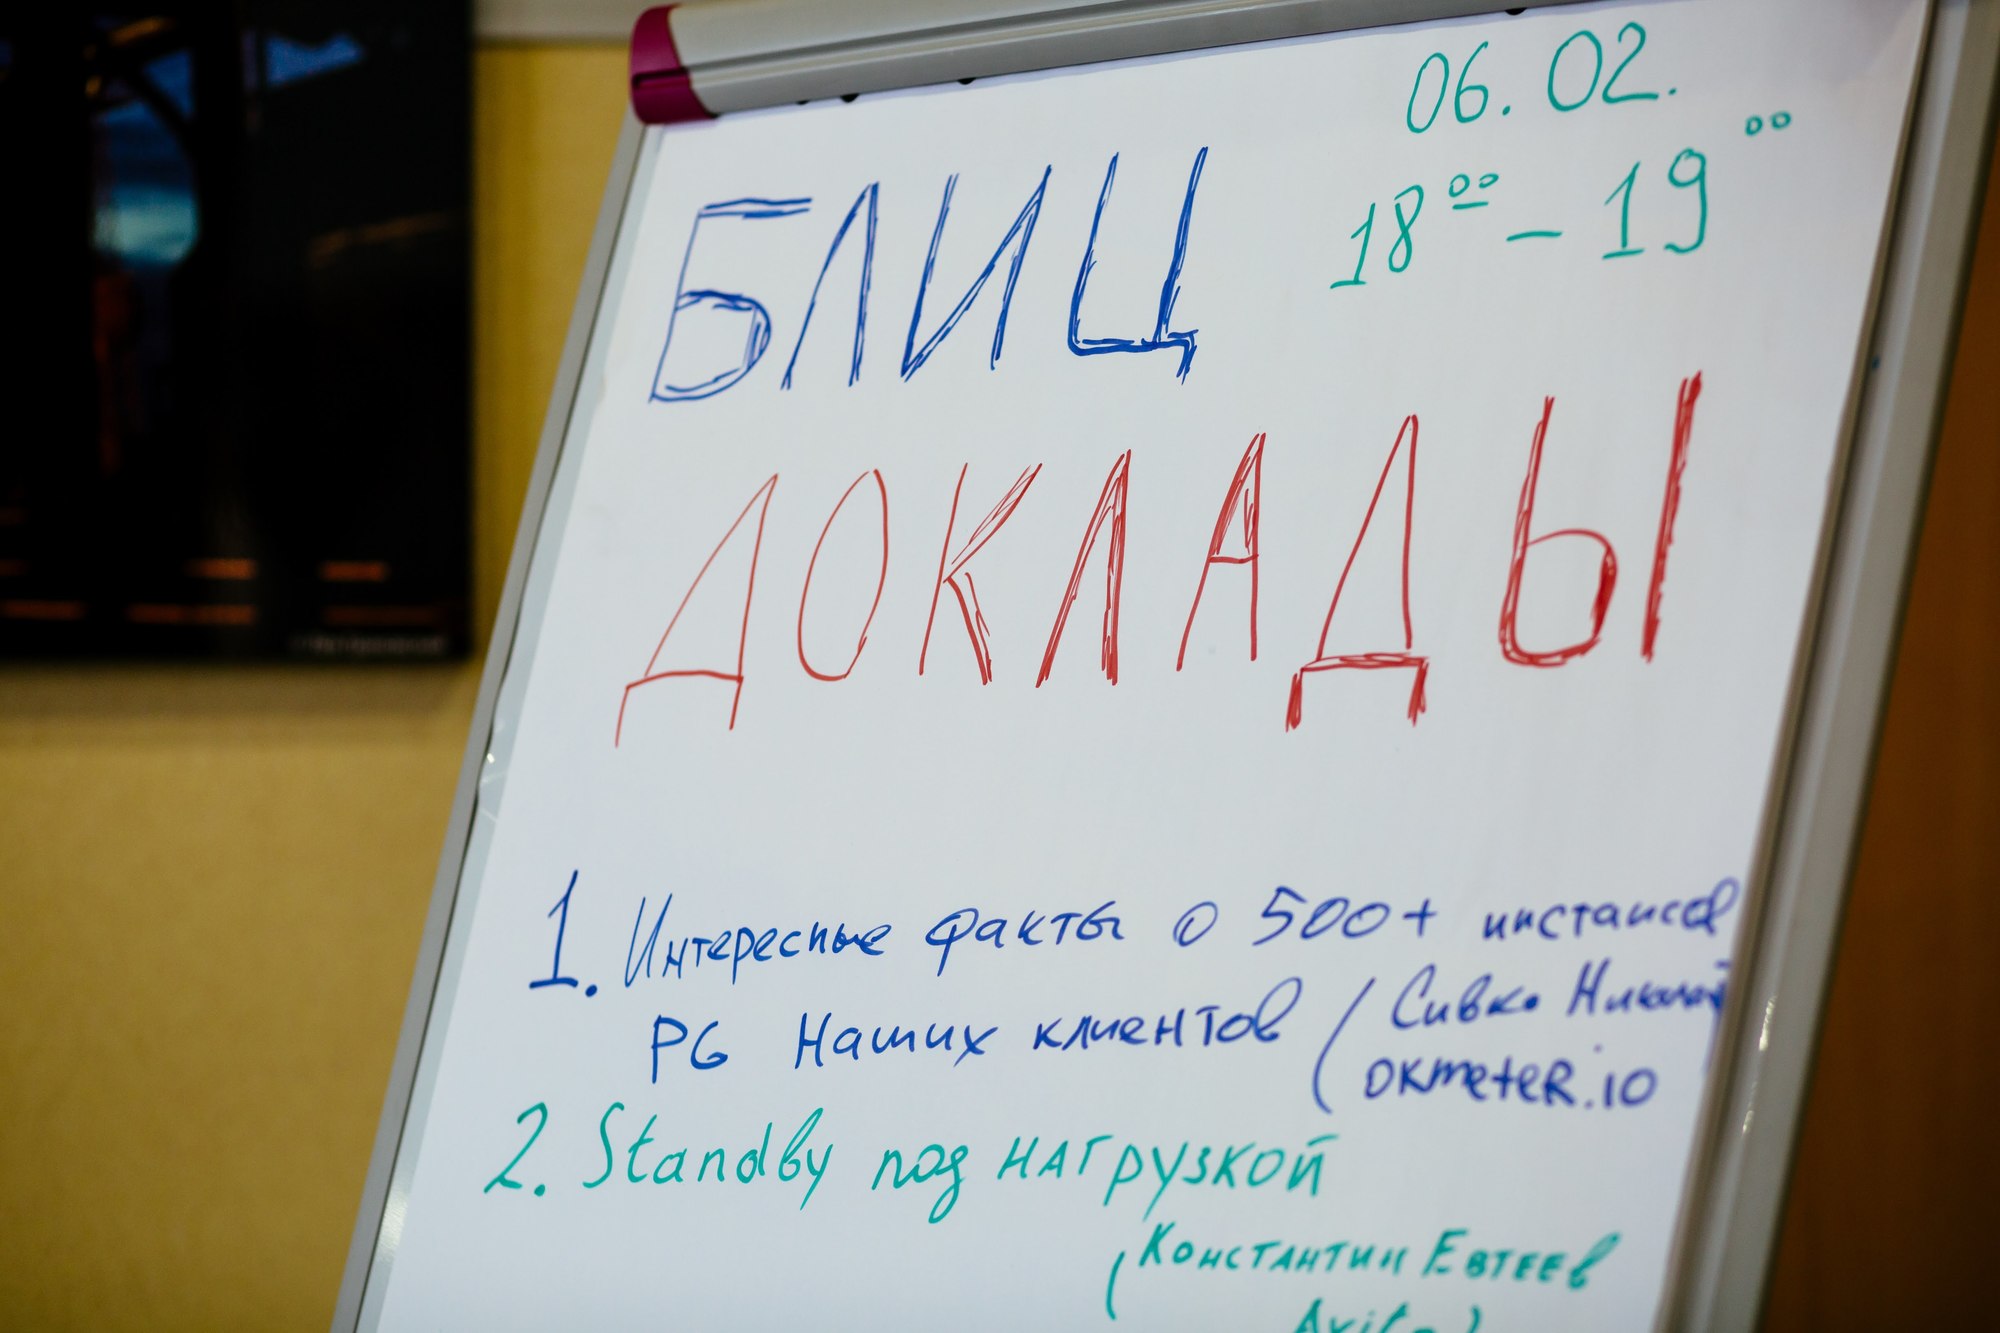 06.02.
18⁰⁰ – 19⁰⁰
БЛИЦ
ДОКЛАДЫ
1. Интересные факты о 500+ инстансов
PG Наших клиентов (Сивко Николай
okmeter.io
2. Standby под нагрузкой
(Константин Евтеев
Avito)